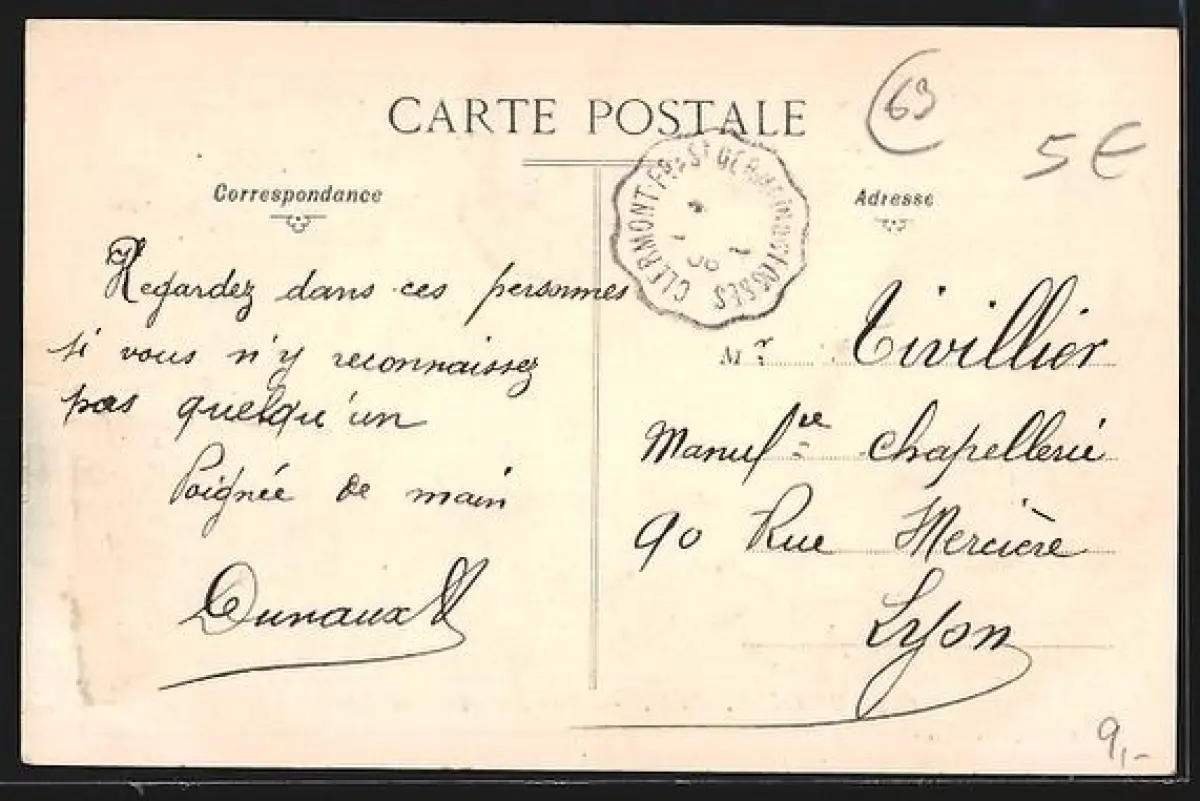 CARTE POSTALE
63
5 €
Correspondance
Regardez dans ces personnes
si vous n'y reconnaissez
pas quelqu'un
Poignée de main
Dunaux
CLERMONT-FD A ST GERMAIN DES FOSSES
Adresse
Mr Tivillier
Manufre chapellerie
90 Rue Mercière
Lyon
9,-